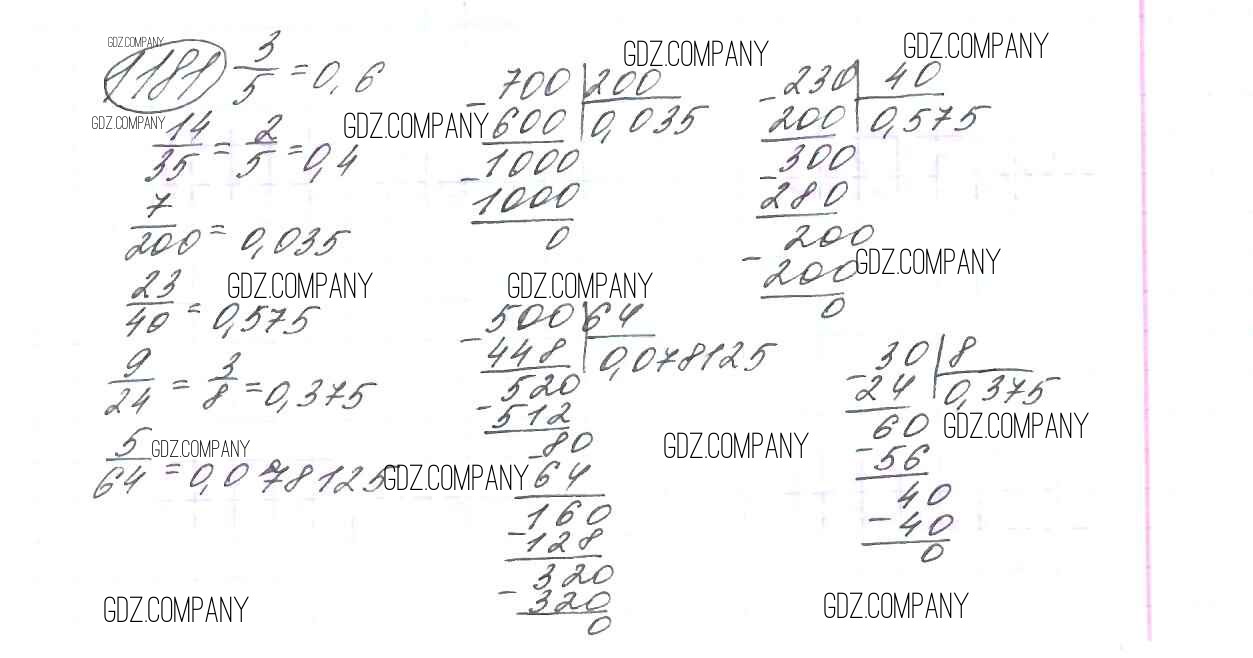 GDZ.COMPANY
1181 3/5 = 0,6
GDZ.COMPANY
14/35 = 2/5 = 0,4
7/200 = 0,035
GDZ.COMPANY
23/40 = 0,575
9/24 = 3/8 = 0,375
GDZ.COMPANY
5/64 = 0,078125
GDZ.COMPANY
GDZ.COMPANY
GDZ.COMPANY
- 700 | 200
600 | 0,035
- 1000
1000
0
GDZ.COMPANY
- 500 | 64
448 | 0,078125
- 520
512
- 80
64
- 160
128
- 320
320
0
GDZ.COMPANY
GDZ.COMPANY
GDZ.COMPANY
- 230 | 40
200 | 0,575
- 300
280
- 200
200
0
GDZ.COMPANY
- 30 | 8
24 | 0,375
- 60
56
- 40
40
0
GDZ.COMPANY
GDZ.COMPANY